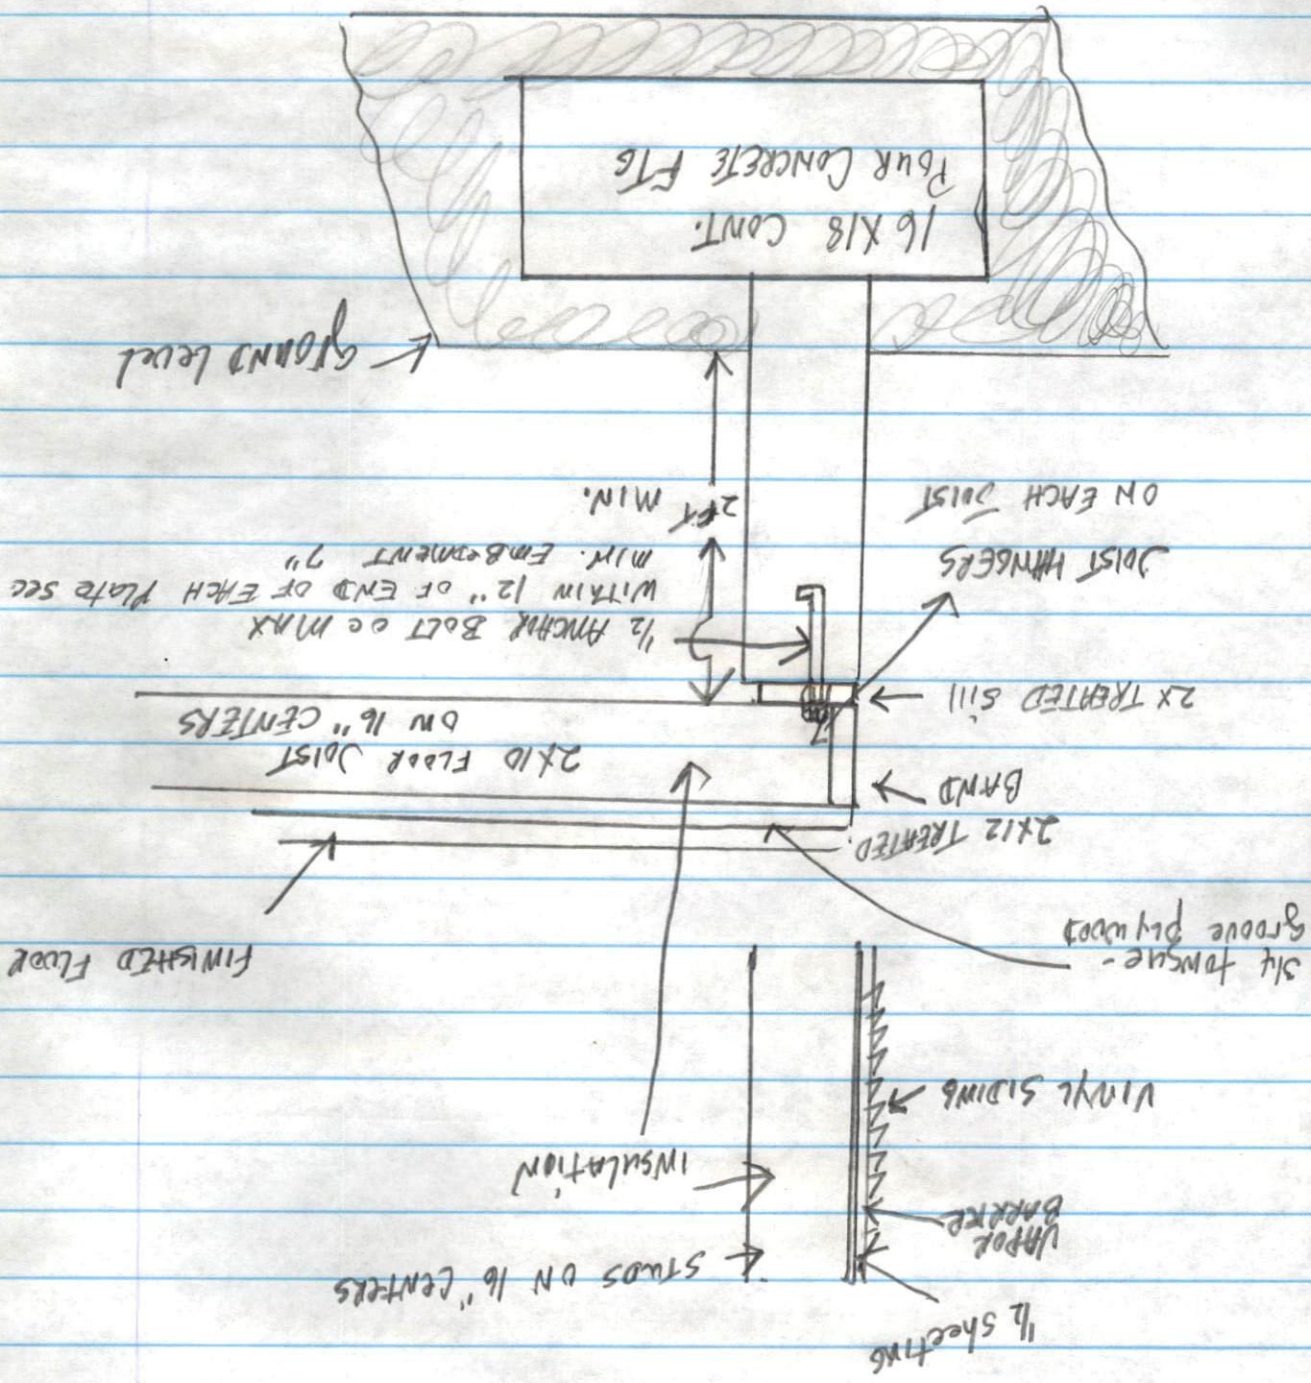 1/2 sheeting
STUDS ON 16" CENTERS
VAPOR
BARRER
INSULATION
VINYL SIDING
3/4 tongue-
groove plywood
FINISHED FLOOR
2X12 TREATED
BAND
2X10 FLOOR JOIST
ON 16" CENTERS
2X TREATED Sill
1/2 ANCHOR BOLT OC MAX
WITHIN 12" OF END OF EACH Plate Sec
MIN. EMBEDMENT 7"
JOIST HANGERS
ON EACH JOIST
2 FT
MIN.
GROUND Level
16 X18 CONT.
POUR CONCRETE FTG